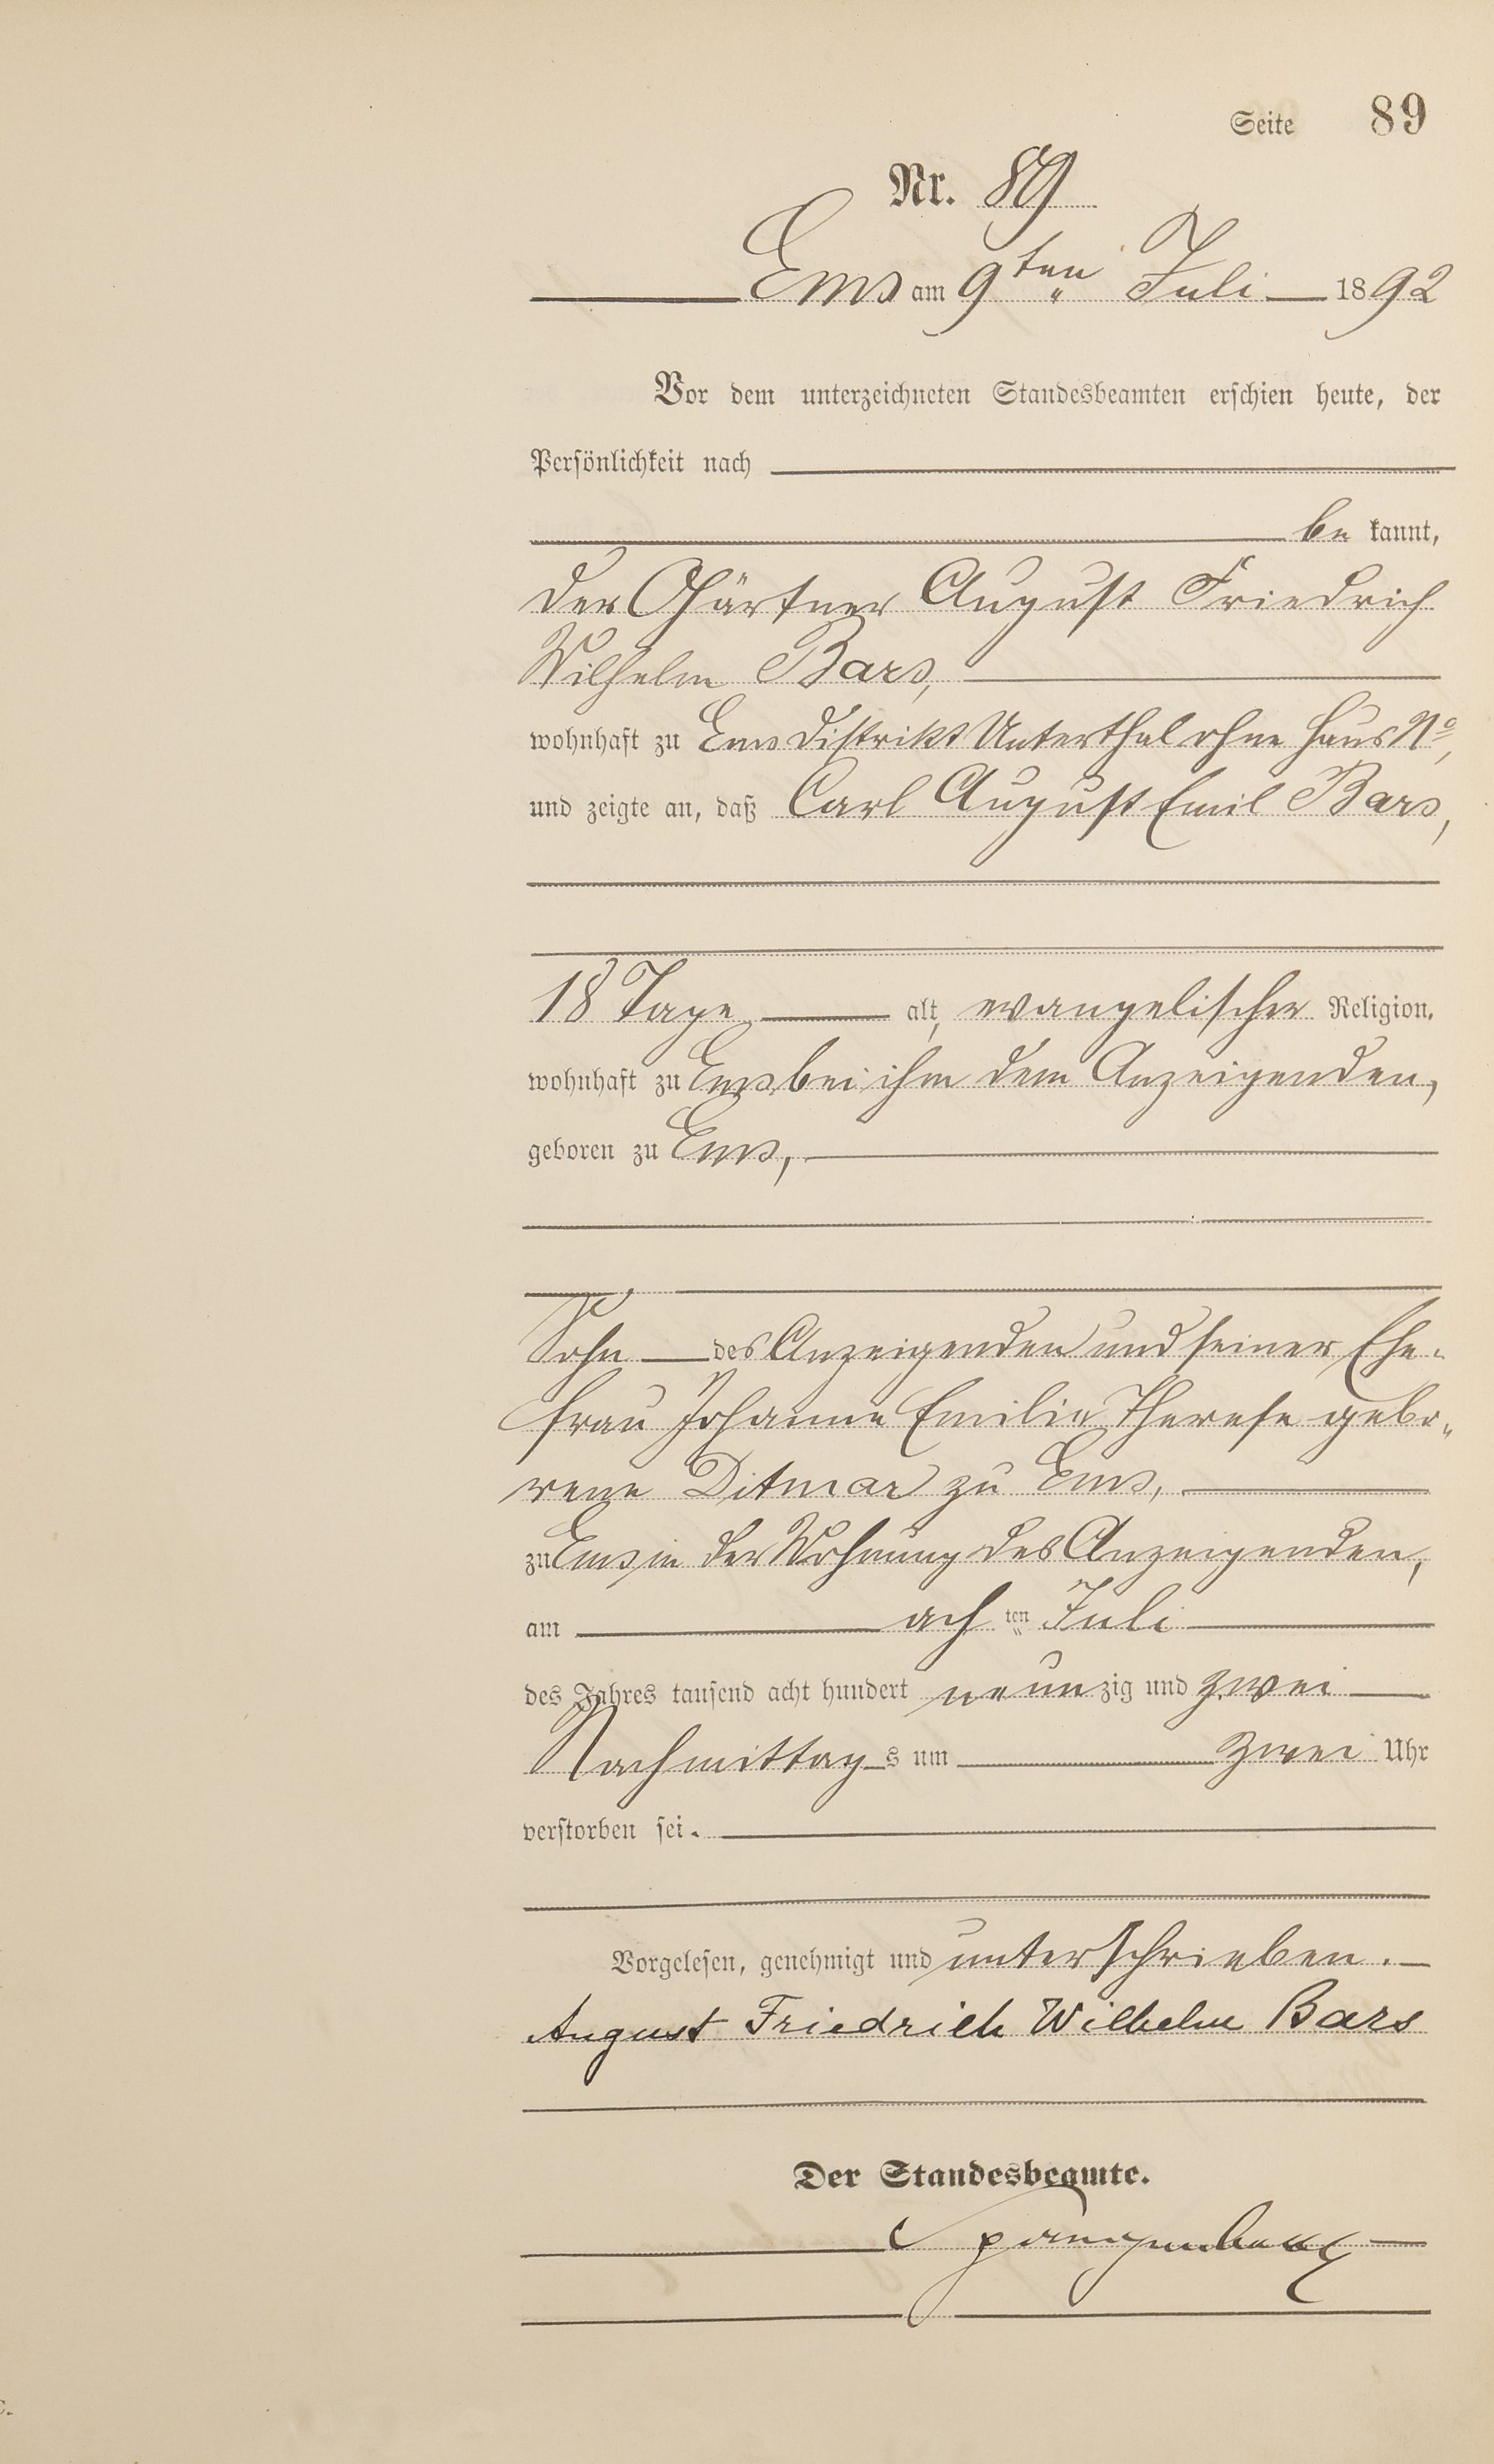 Seite 89
Nr. 89
Ems am 9ten Juli 1892
Vor dem unterzeichneten Standesbeamten erschien heute, der
Persönlichkeit nach
be kannt,
der Gärtner August Friedrich
Wilhelm Bars,
wohnhaft zu Ems Distrikt Unterthal ohne Haus No,
und zeigte an, daß Carl August Emil Bars,
18 Tage alt, evangelischer Religion,
wohnhaft zu Ems bei ihm dem Anzeigenden,
geboren zu Ems,
Sohn des Anzeigenden und seiner Ehe-
frau Johanne Emilie Therese gebo-
rene Ditmar zu Ems,
zu Ems in der Wohnung des Anzeigenden,
am ach ten Juli
des Jahres tausend acht hundert neun zig und zwei
Nachmittag s um zwei Uhr
verstorben sei.
Vorgelesen, genehmigt und unterschrieben.
August Friedrich Wilhelm Bars
Der Standesbeamte.